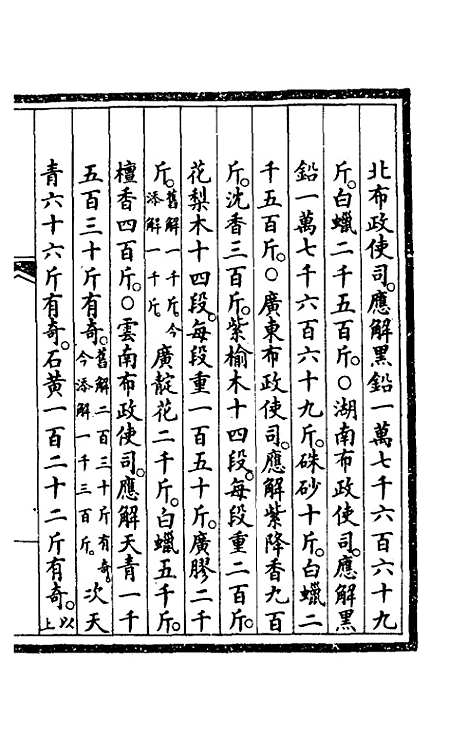 北布政使司。應解黑鉛一萬七千六百六十九
斤。白蠟二千五百斤。○湖南布政使司。應解黑
鉛一萬七千六百六十九斤。硃砂十斤。白蠟二
千五百斤。○廣東布政使司。應解紫降香九百
斤。沈香三百斤。紫榆木十四段。每段重二百斤。
花梨木十四段。每段重一百五十斤。廣膠二千
斤。舊解一千斤。今添解一千斤。廣靛花二千斤。白蠟五千斤。
檀香四百斤。○雲南布政使司。應解天青一千
五百三十斤有奇。舊解二百三十斤有奇。今添解一千三百斤。次天
青六十六斤有奇。石黃一百二十二斤有奇。以上